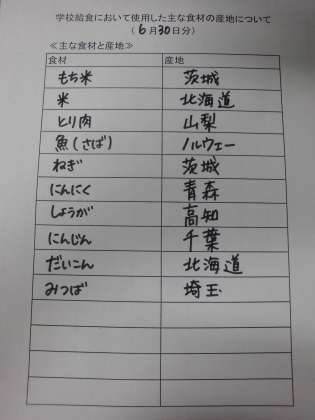 学校給食において使用した主な食材の産地について
(6月30日分)
≪主な食材と産地≫
食材 産地
もち米 茨城
米 北海道
とり肉 山梨
魚(さば) ノルウェー
ねぎ 茨城
にんにく 青森
しょうが 高知
にんじん 千葉
だいこん 北海道
みつば 埼玉